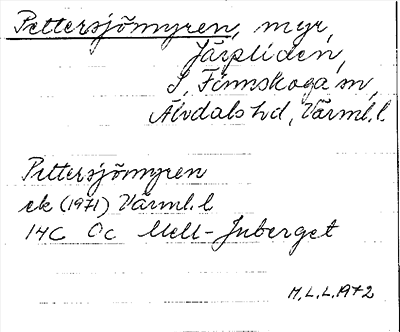 Pettersjömyren, myr,
Järpliden,
S. Finnskoga sn,
Älvdals hd, Värml. l.
Pettersjömyren
ek (1971) Värml. l
14C Oc Mell-Juberget
M.L.L. 1972